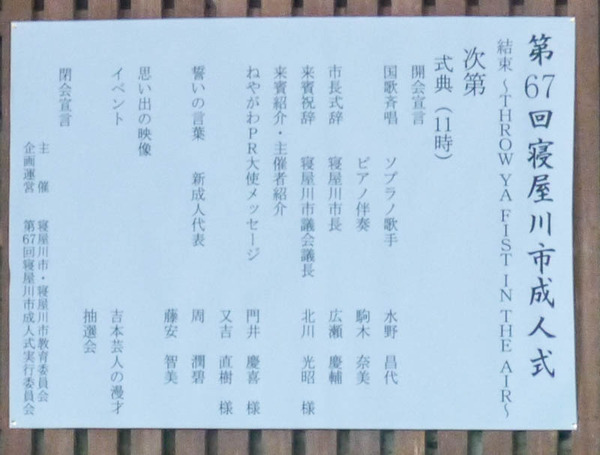 第67回寝屋川市成人式
結束 ～THROW YA FIST IN THE AIR～
次第
式典（11時）
開会宣言
国歌斉唱 ソプラノ歌手 水野 昌代
ピアノ伴奏 駒木 奈美
市長式辞 寝屋川市長 広瀬 慶輔
来賓祝辞 寝屋川市議会議長 北川 光昭 様
来賓紹介・主催者紹介
ねやがわPR大使メッセージ 門井 慶喜 様
又吉 直樹 様
誓いの言葉 新成人代表 周 潤碧
藤安 智美
思い出の映像
イベント 吉本芸人の漫才
抽選会
閉会宣言
主催 寝屋川市・寝屋川市教育委員会
企画運営 第67回寝屋川市成人式実行委員会